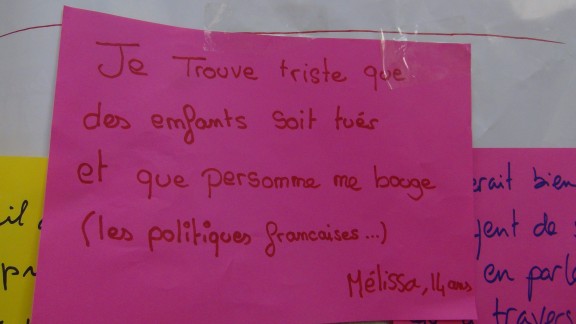 Je Trouve triste que
des enfants soit tués
et que personne ne bouge
(les politiques francaises...)
Mélissa, 14 ans
il
pr
erait bien
gent de
en parl
travers